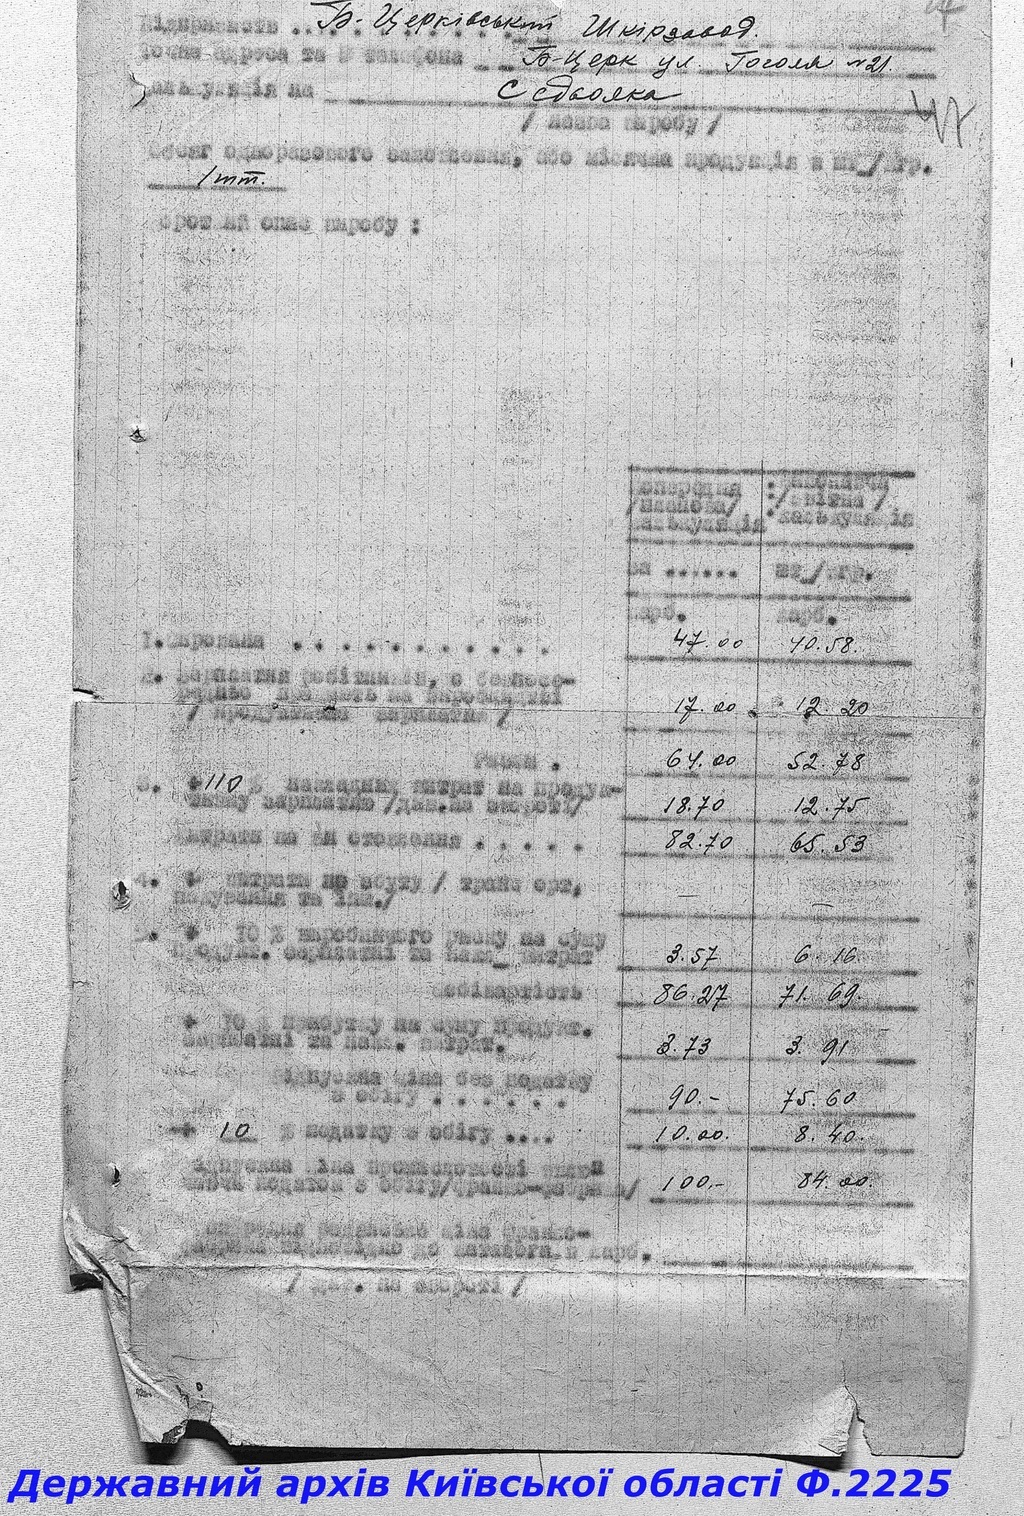 Підприємств Б-Церківський Шкірзавод.
Точна адреса та № телефона Б-Церк ул. Гоголя №21
Калькуляція на Сєдьолка
47
/ назва виробу /
Обсяг одноразового замовлення, або місячна продукція в шт/кгр.
1 шт.
Короткий опис виробу :
Попередня : Виконавча
/планова/ :/звітна /
калькуляція калькуляція
за ...... шт/кгр.
карб. карб.
1. . . . . . . . . . . . 47.00 40.58.
2. Зарплатня робітників, безпосе-
редньо на виробництві
/ продуктивна зарплатня / 17.00 12.20
Разом . 64.00 52.78
3. +110 % накладних витрат на продук-
тивну зарплатню /див.на звороті/ 18.70 12.75
Витрати на виготовлення . . . . . 82.70 65.53
4. + витрати по збуту / транспорт,
пакування та інш./ — —
5. + 10 % виробничого ризику на суму
продукт. зарплатні та накл. витрат 3.57 6.16
Собівартість 86.27 71.69.
+ 10 % прибутку на суму продукт.
зарплатні та накл. витрат. 3.73 3.91
Відпускна ціна без податку
з обігу . . . . . . 90.- 75.60
+ 10 % податку з обігу .... 10.00. 8.40.
Відпускна ціна промисловості
податок з обігу/франко-фабрика/ 100.- 84.00.
ціна франко-
фабрика відповідно до каталога в карб.
/ див. на звороті /
Державний архів Київської області Ф.2225